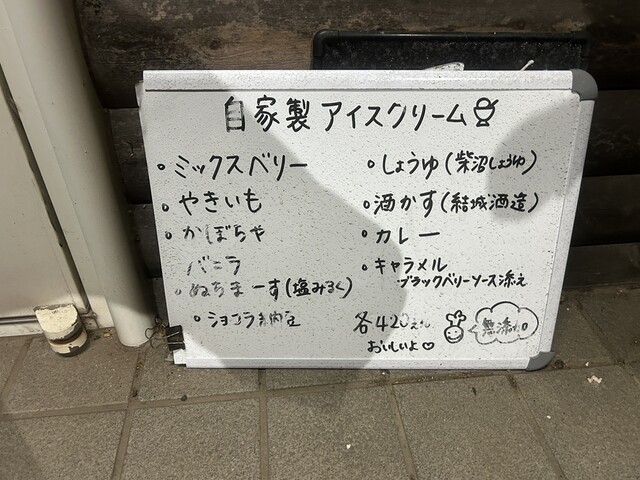 自家製アイスクリーム
・ミックスベリー
・やきいも
・かぼちゃ
バニラ
・ぬちまーす(塩みるく)
・ショコラ納豆
・しょうゆ(柴沼しょうゆ)
・酒かす(結城酒造)
・カレー
・キャラメル
・ブラックベリーソース添え
各420えん
おいしいよ♡
無添加